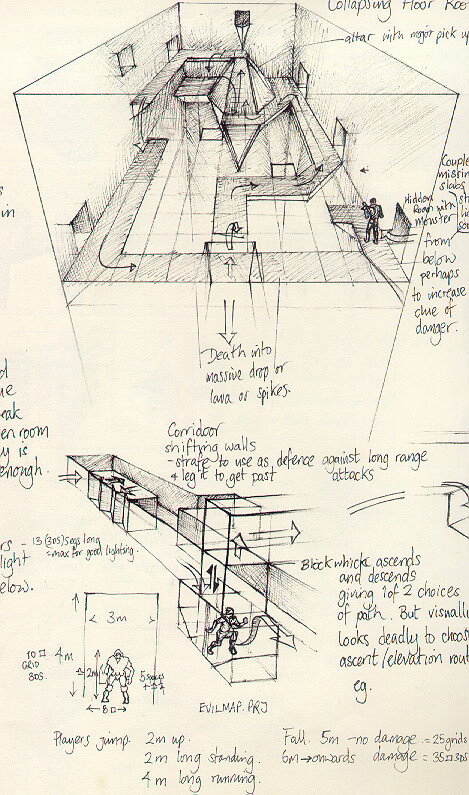 Collapsing Floor Roo
altar with major pick up
Couple
missin
slabs
st
li
sou
Hidden
Room with
monster
from
below
perhaps
to increase
clue of
danger.
in
Death into
massive drop or
lava or spikes.
eak
en room
y is
enough.
Corridoor
shifting walls
- strafe to use as defence against long range
attacks
& leg it to get past
rs - 13 (3DS) segs long
= max for good lighting.
light
elow.
Block which ascends
and descends
giving 1 of 2 choices
of path. But visually
looks deadly to choos
ascent/elevation rout
eg.
3m
10 □
GRID
3DS.
4m
2m
5 spaces
8□
EVILMAP.PRJ
Players jump. 2m up.
2m long standing.
4m long running.
Fall. 5m - no damage. = 25 grids
6m → onwards damage = 35□ 3DS